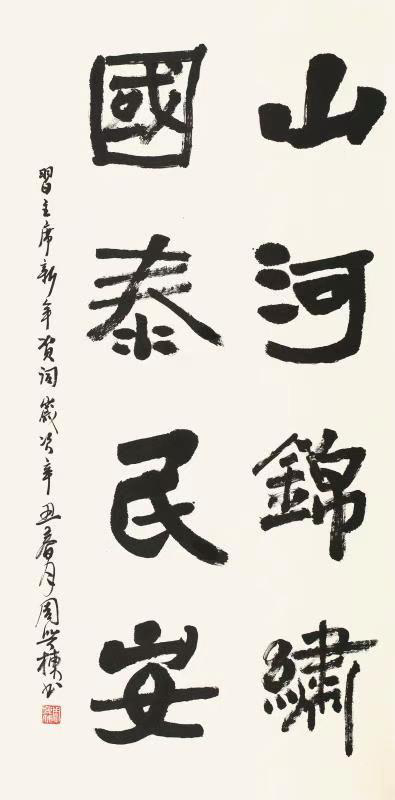 山河錦繡
國泰民安
習主席新年賀詞歲次辛丑春月周興棟书